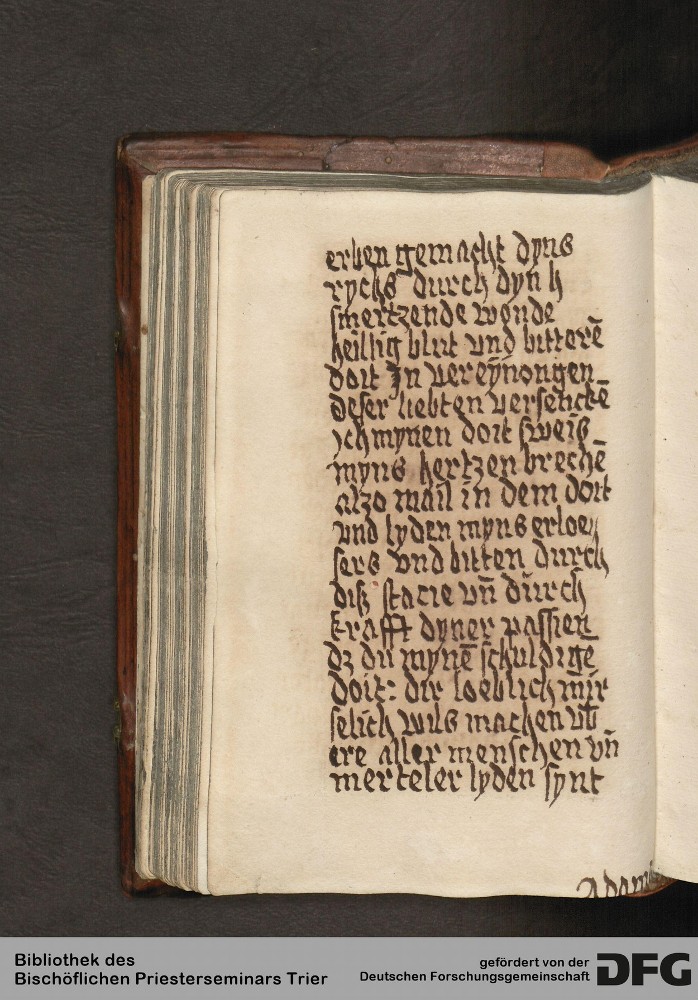 erben gemacht dyns
rychs durch dyn h
smertzende wonde
heillig blut vnd bitterē
doit Jn vereynongen
deser liebten versenckē
ich mynen doit sweis
myns hertzen brechē
alzo mail in dem doit
vnd lyden myns erloe
sers vnd bitten durch
diß stacie vn̄ durch
krafft dyner passien
dz du mynē schuldige
doit: dir loeblich mir
selich wils machen vb̄
ere aller menschen vn̄
merteler lyden synt
Adam
Bibliothek des
Bischöflichen Priesterseminars Trier
gefördert von der
Deutschen Forschungsgemeinschaft
DFG